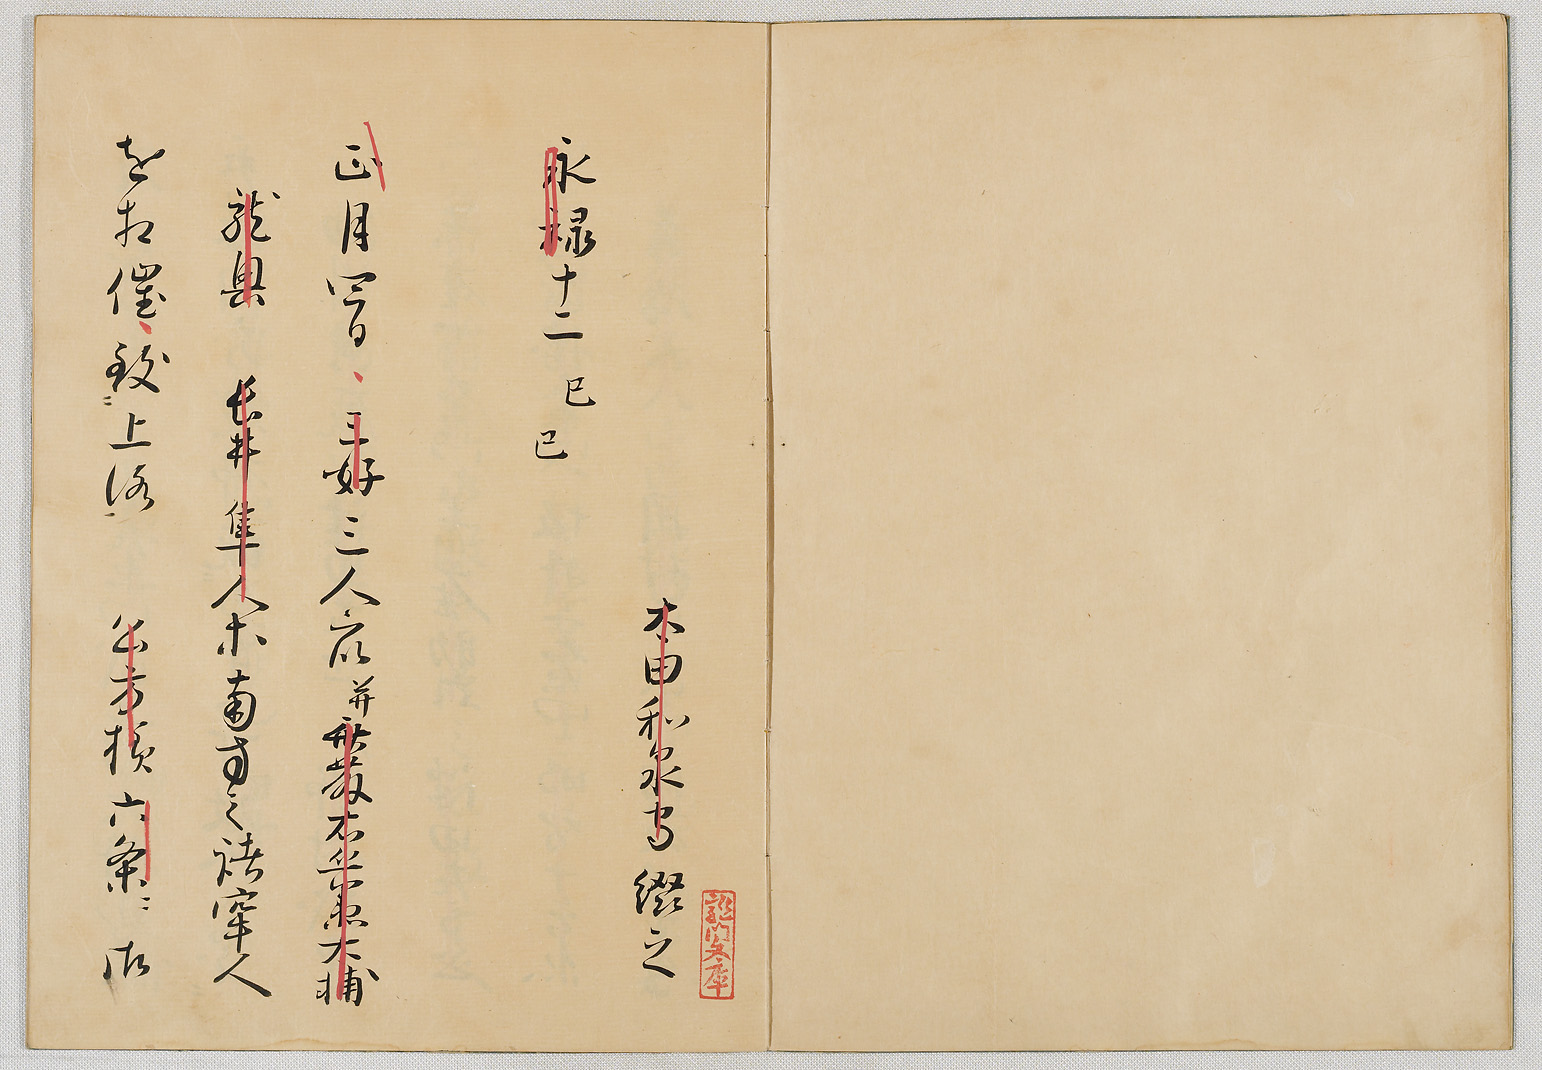 太田和泉守 綴之
龍門文庫
永禄十二 己巳
正月四日、三好三人衆并斎藤右兵衛大輔
龍興 長井隼人等南方之諸牢人
を相催、致上洛 公方様六条ニ御